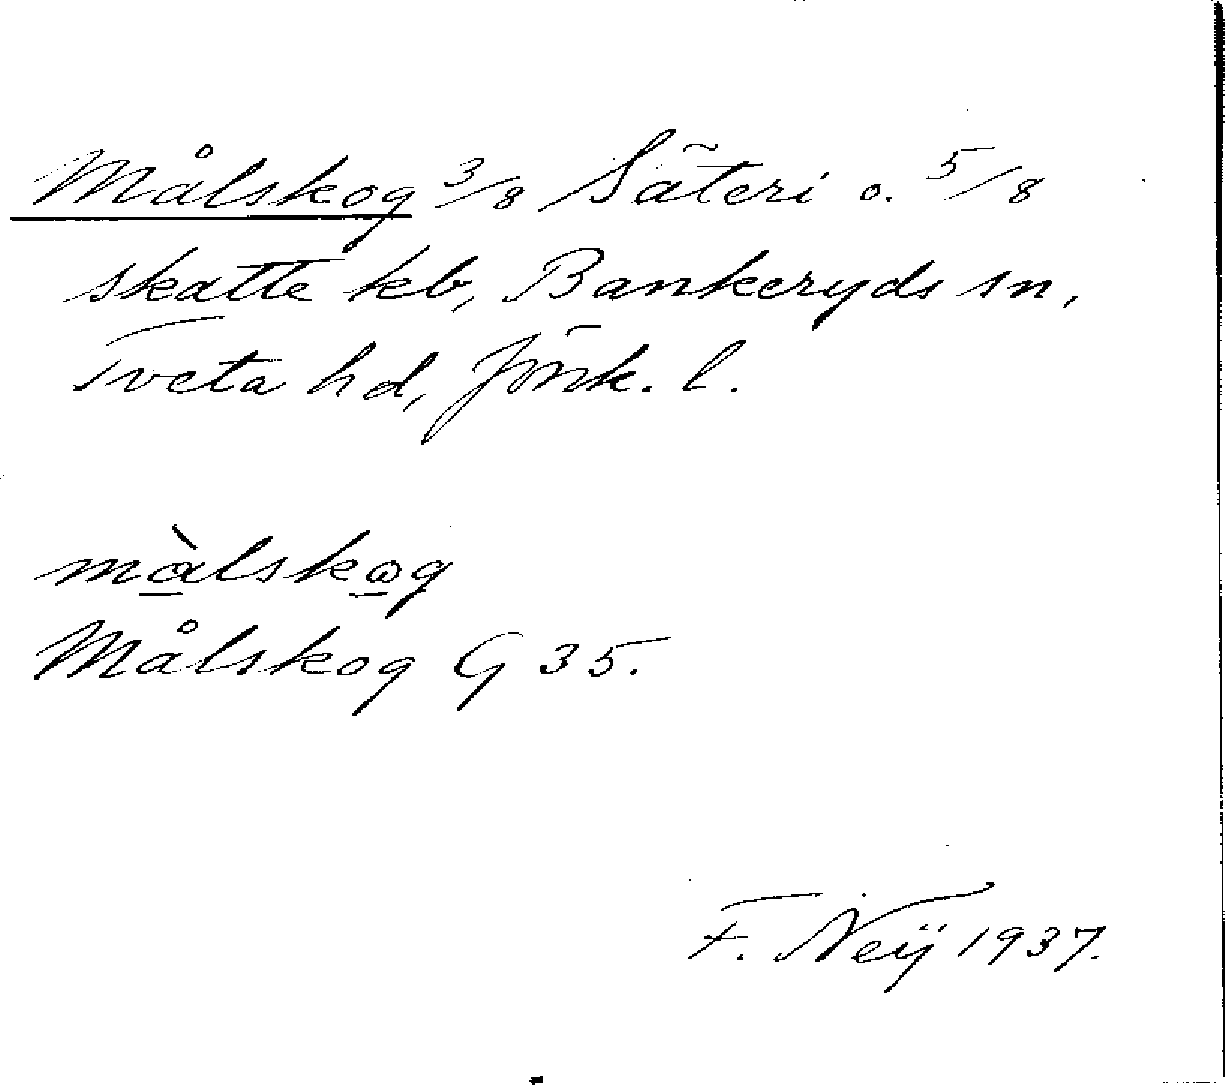 Målskog 3/8 Säteri o. 5/8
skatte kb, Bankeryds sn,
Tveta hd, Jönk. l.
màlskog
Målskog G 35.
F. Neÿ 1937.